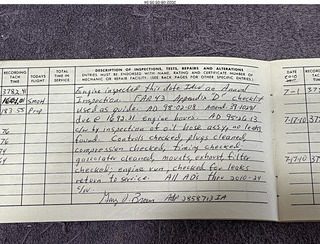 RECORDING TACH TIME
TODAY'S FLIGHT
TOTAL TIME IN SERVICE
DESCRIPTION OF INSPECTIONS, TESTS, REPAIRS AND ALTERATIONS
ENTRIES MUST BE ENDORSED WITH NAME, RATING AND CERTIFICATE NUMBER OF
MECHANIC OR REPAIR FACILITY. (SEE BACK PAGES FOR OTHER SPECIFIC ENTRIES.)
DATE
RECORDING TACH TIME
3782.41 Engine inspected this date IAW an Annual
SMOH Inspection. FAR 43 Appendix "D" checklist
used as guide. AD 98-02-08
due @ 1692.11 engine hours. AD 95-26-13
c/w by inspection of oil hose assy, no leaks
found. Controls checked, plugs cleaned,
compression checked, timing checked,
gascolator cleaned, mounts, exhaust, filter
checked, engine run, checked for leaks
return to service. All ADs thru 2010-24
c/w.
2858713 IA
7-1
7-17-10
7-17-10